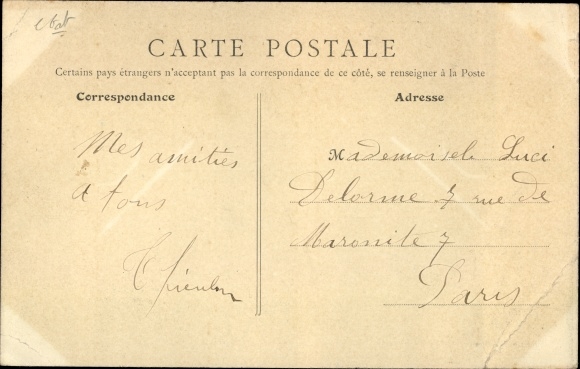 CARTE POSTALE
Certains pays étrangers n'acceptant pas la correspondance de ce côté, se renseigner à la Poste
Correspondance
Mes amitiés
a tous
Adresse
Mademoisele Luci
Delorme 7 rue de
Maronite 7
Paris